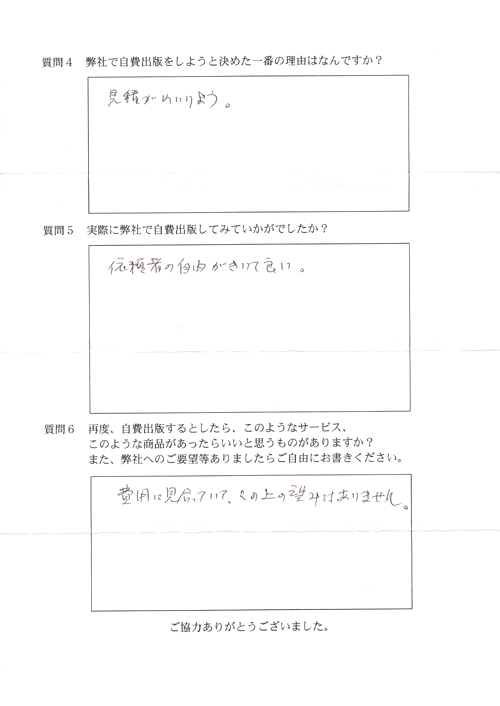 質問4 弊社で自費出版をしようと決めた一番の理由はなんですか?
見積が
質問5 実際に弊社で自費出版してみていかがでしたか?
依頼者の自由がきいて良い。
質問6 再度、自費出版するとしたら、このようなサービス、
このような商品があったらいいと思うものがありますか?
また、弊社へのご要望等ありましたらご自由にお書きください。
費用に見合っていて、この上の望みはありません。
ご協力ありがとうございました。